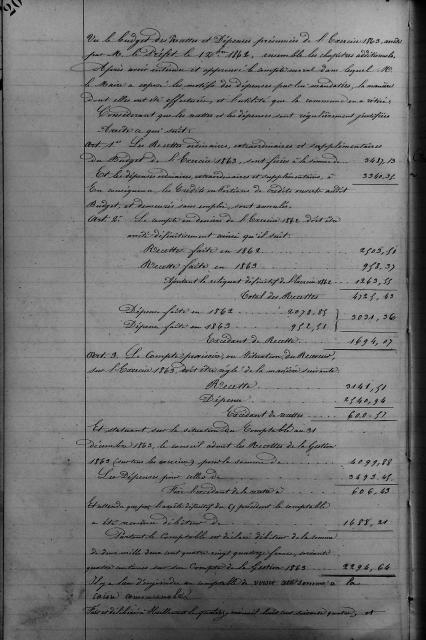 Vu le Budget des Recettes et Dépenses présumées de l'Exercice 1863, arrêté
par M. le Préfet le 12 1862, ensemble les chapitres additionnels,
Après avoir entendu et approuvé le compte rendu dans lequel M.
le Maire a exposé les motifs des dépenses par lui mandatées, la manière
dont elles ont été effectuées, et l'utilité que la commune en a retirée;
Considérant que les recettes et les dépenses sont régulièrement justifiées
Arrête ce qui suit:
Art. 1er Les Recettes ordinaires, extraordinaires et supplémentaires
du Budget de l'Exercice 1863, sont fixées à la somme de 3487,13
Et les dépenses ordinaires, extraordinaires et supplémentaires, à 3360,35
En conséquence, les Crédits ou portions de Crédits ouverts audit
Budget, et demeurés sans emploi, sont annulés.
Art. 2. Le compte en deniers de l'Exercice 1862 doit être
arrêté définitivement ainsi qu'il suit:
Recette faite en 1862 2503,51
Recette faite en 1863 958,37
Ajoutant le reliquat définitif de l'Exercice 1263,55
Total des Recettes 4725,43
Dépense faite en 1862 2078,85
3031,36
Dépense faite en 1863 952,51
Excédant de Recette 1694,07
Art. 3. Le Compte provisoire, ou Situation du Receveur,
sur l'Exercice 1863, doit être réglé de la manière suivante
Recette 3141,51
Dépense 2540,94
Excédant de recettes 600,57
Et statuant sur la situation du Comptable au 31
décembre 1863, le conseil admet les Recettes de la Gestion
1863 (sur tous les exercices) pour la somme de 4099,88
Les Dépenses pour celle de 3493,45
Fait l'excédant de la recette à 606,43
Et attendu que par l'arrêté définitif du précédent le comptable
a été reconnu débiteur de 1688,21
Partant le Comptable est déclaré débiteur de la somme
de deux mille deux cent quatre vingt quatorze francs, soixante
quatre centimes sur son Compte de la Gestion 1863 2294,64
Il y a lieu d'enjoindre au comptable de verser cette somme à la
caisse communale.
Fait et délibéré à mil huit cent soixante quatre, et